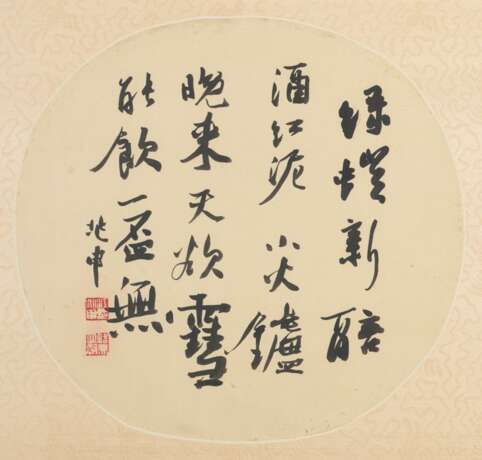 綠螘新醅
酒紅泥小火鑪
晚來天欲雪
能飲一盃無
兆申